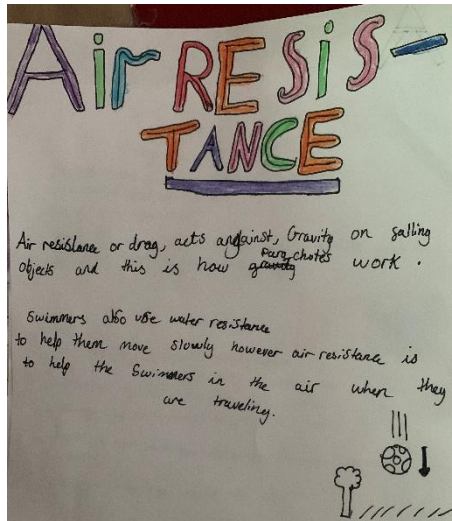 Air RESiS-
TANCE
Air resistance or drag, acts against, Gravity on falling
objects and this is how parachotes work.
Swimmers also use water resistance
to help them move slowly however air resistance is
to help the Swimmers in the air when they
are traveling.